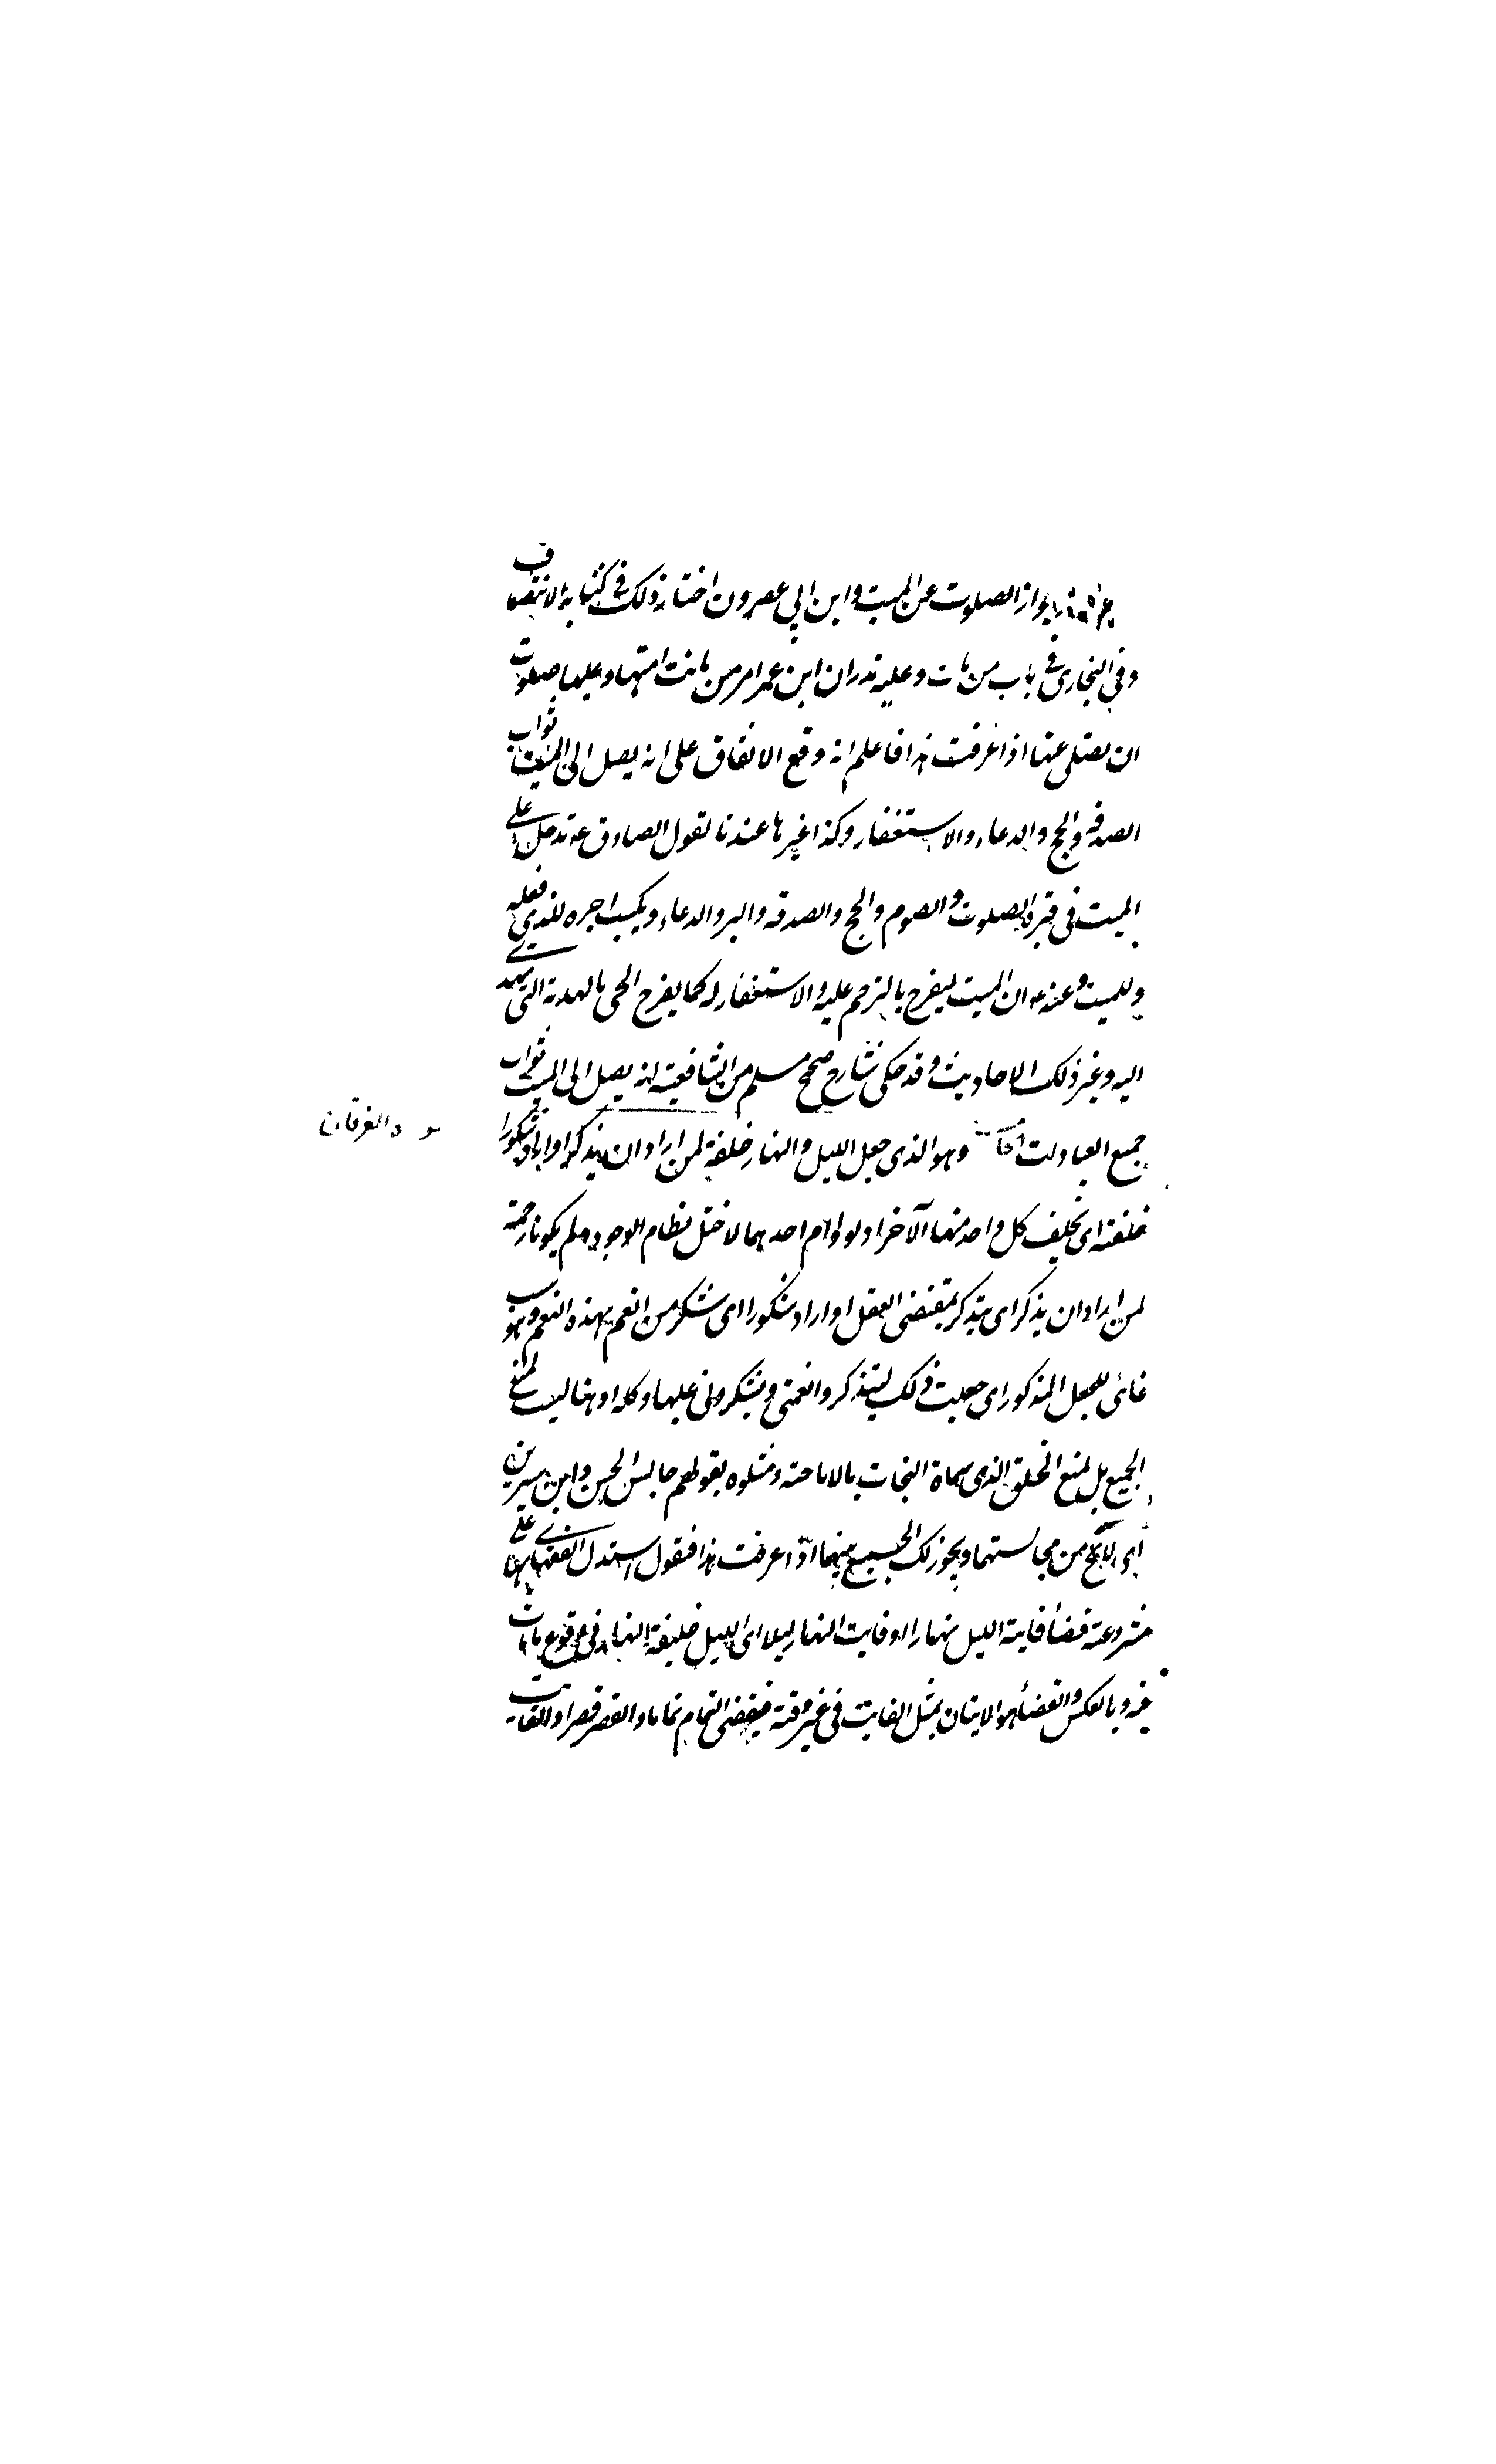 بجواز الصلوت عن الميت وابن ابي عصرون اختار ذلك في كتابه الانتصاف
وفي البخاري في باب من مات وعليه نذر ان ابن عمر امر من ماتت امتها وعليها صلوت
ان يصلى عنها اذا عرفت هذا فاعلم انه وقع الاتفاق على انه يصل الى الميت ثواب
الصدقة والحج والدعاء والاستغفار وكذا غيرها عندنا لقول الصادق ع تدخل على
الميت في قبره الصلوت والصوم والحج والصدقه والبر والدعاء ويكتب اجره للذي فعله
وللميت وعنه ع ان الميت ليفرح بالترحم عليه والاستغفار له كما يفرح الحى بالهدية التي تهدى
اليه وغير ذلك الاحاديث وقد حكى شارح صحيح مسلم من الشافعية انه يصل الى الميت ثواب
جميع العبادات وهو الذي جعل الليل والنهار خلفة لمن اراد ان يذكر او اراد شكورا
سورة الفرقان
خلفته اى يخلف كل واحد منهما الآخر اذ لو دام احدهما لاختل نظام الوجود ولم يكونا رحمة
لمن اراد ان يذكر اى يتذكر بمقتضى العقل او اراد شكورا اى شكر من انعم بهذه النعم وهو سبب
غائى للجعل المذكور اى جعلت ذلك ليتذكروا نعمتى ويشكرونى عليها وكلمة او هنا ليست لمنع
الجميع بل لمنع الخلق الذي سماة النحات بالاباحة ومثلوه بقولهم جالس الحسن وابن سيرين
اى لا تخل من مجالستهما ويجوز لك الجميع بينهما اذا عرفت هذا فنقول استدل الفقهاء بهذا على
مشروعية قضاء فايتة الليل نهارا او فايت النهار ليلا اى الليل خليفة النهار في وقوع مافات
فيه وبالعكس والقضاء هو الاتيان بمثل الفايت في غير وقته فيقضى التمام تماما والقصر قصرا والفايت